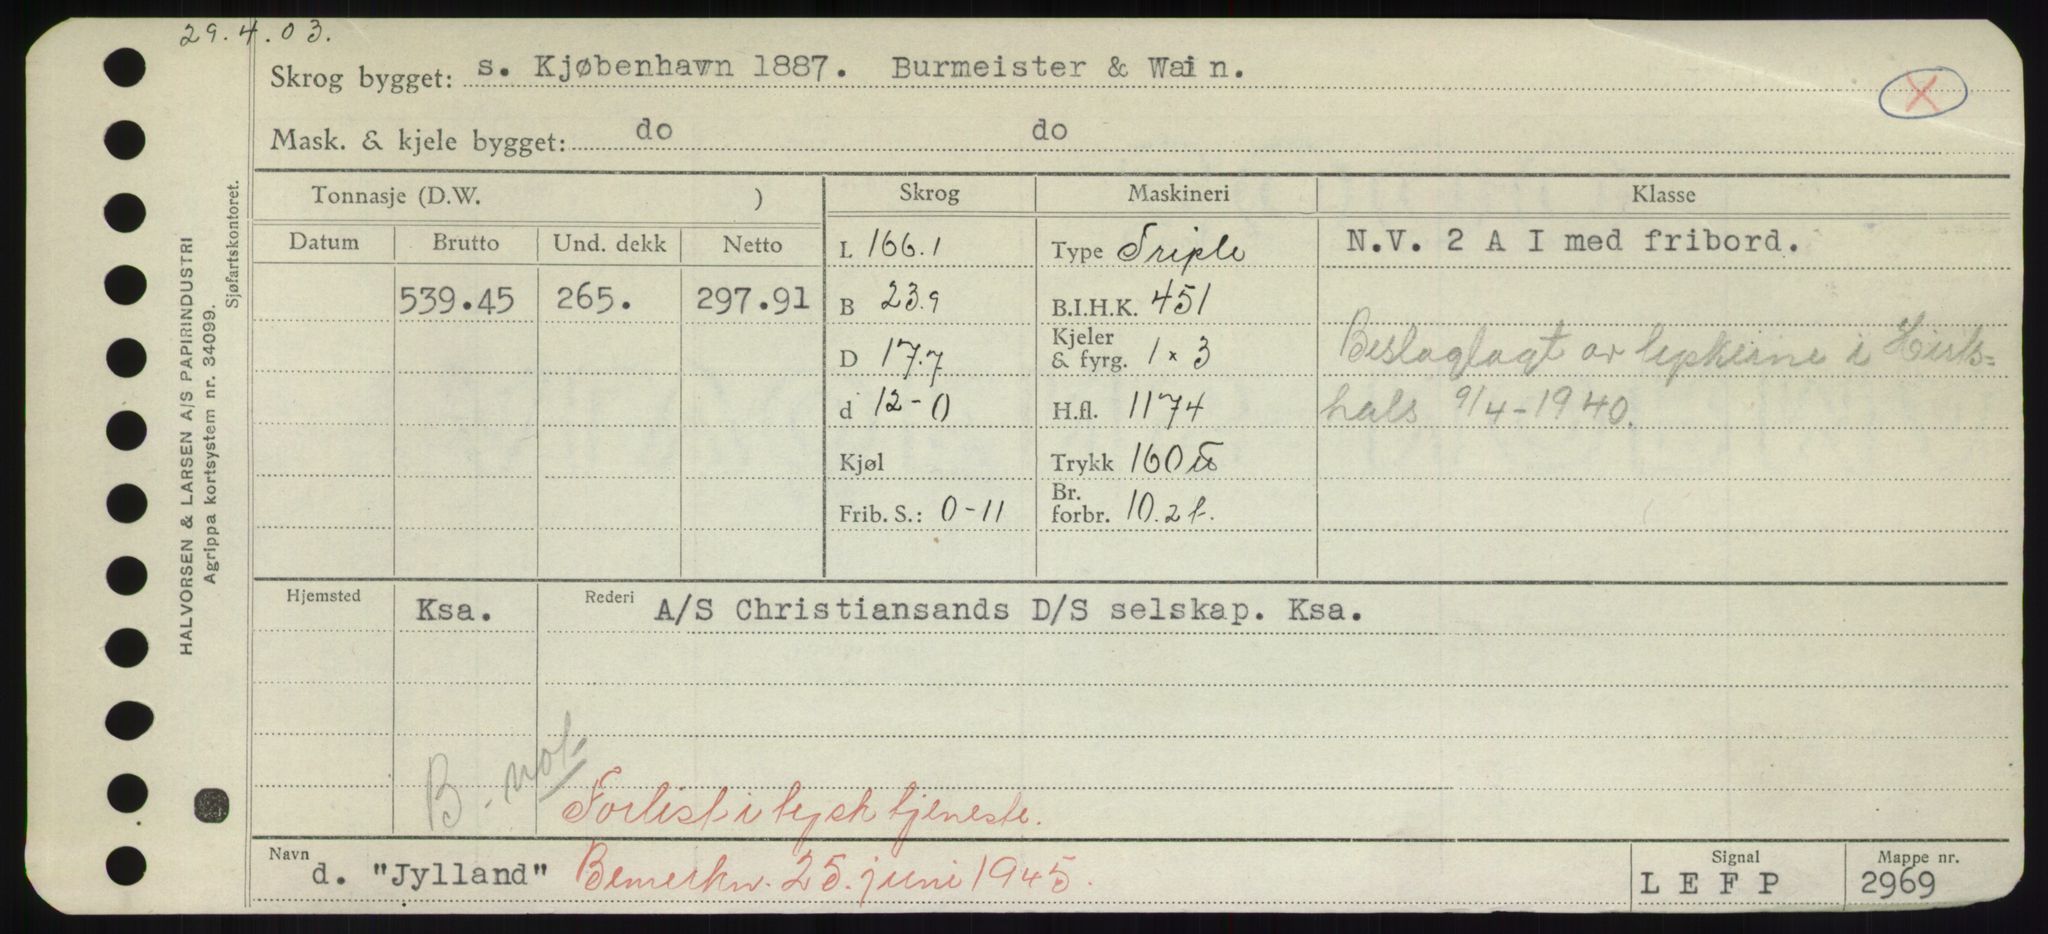 29.4.03.
Skrog bygget: s. Kjøbenhavn 1887. Burmeister & Wain.
X
Mask. & kjele bygget: do do
HALVORSEN & LARSEN A/S PAPIRINDUSTRI
Agrippa kortsystem nr. 34099.
Sjøfartskontoret.
Tonnasje (D.W. ) Skrog Maskineri Klasse
Datum Brutto Und. dekk Netto
L 166.1 Type Triple N.V. 2 A I med fribord.
539.45 265. 297.91 B 23.9 B.I.H.K. 451
D 17.7 Kjeler & fyrg. 1 x 3 Beslaglagt av tyskerne i Hirts-
d 12-0 H.fl. 1174 hals 9/4-1940.
Kjøl Trykk 160 ℔
Frib. S.: 0-11 Br. forbr. 10.2 t.
Hjemsted Ksa. Rederi A/S Christiansands D/S selskap. Ksa.
B. not.
Forlist i tysk tjeneste.
Navn d. "Jylland" Bemerkn. 25. juni 1945.
Signal LEFP
Mappe nr. 2969